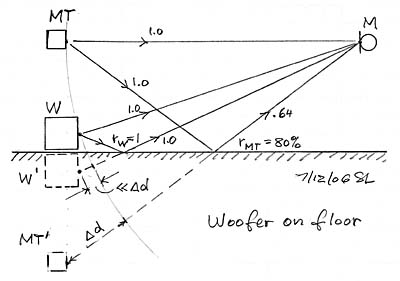 MT
1.0
M
1.0
W
1.0
r_W=1
1.0
.64
r_MT=80%
W'
≪Δd
7/12/06 SL
Δd
Woofer on floor
MT'